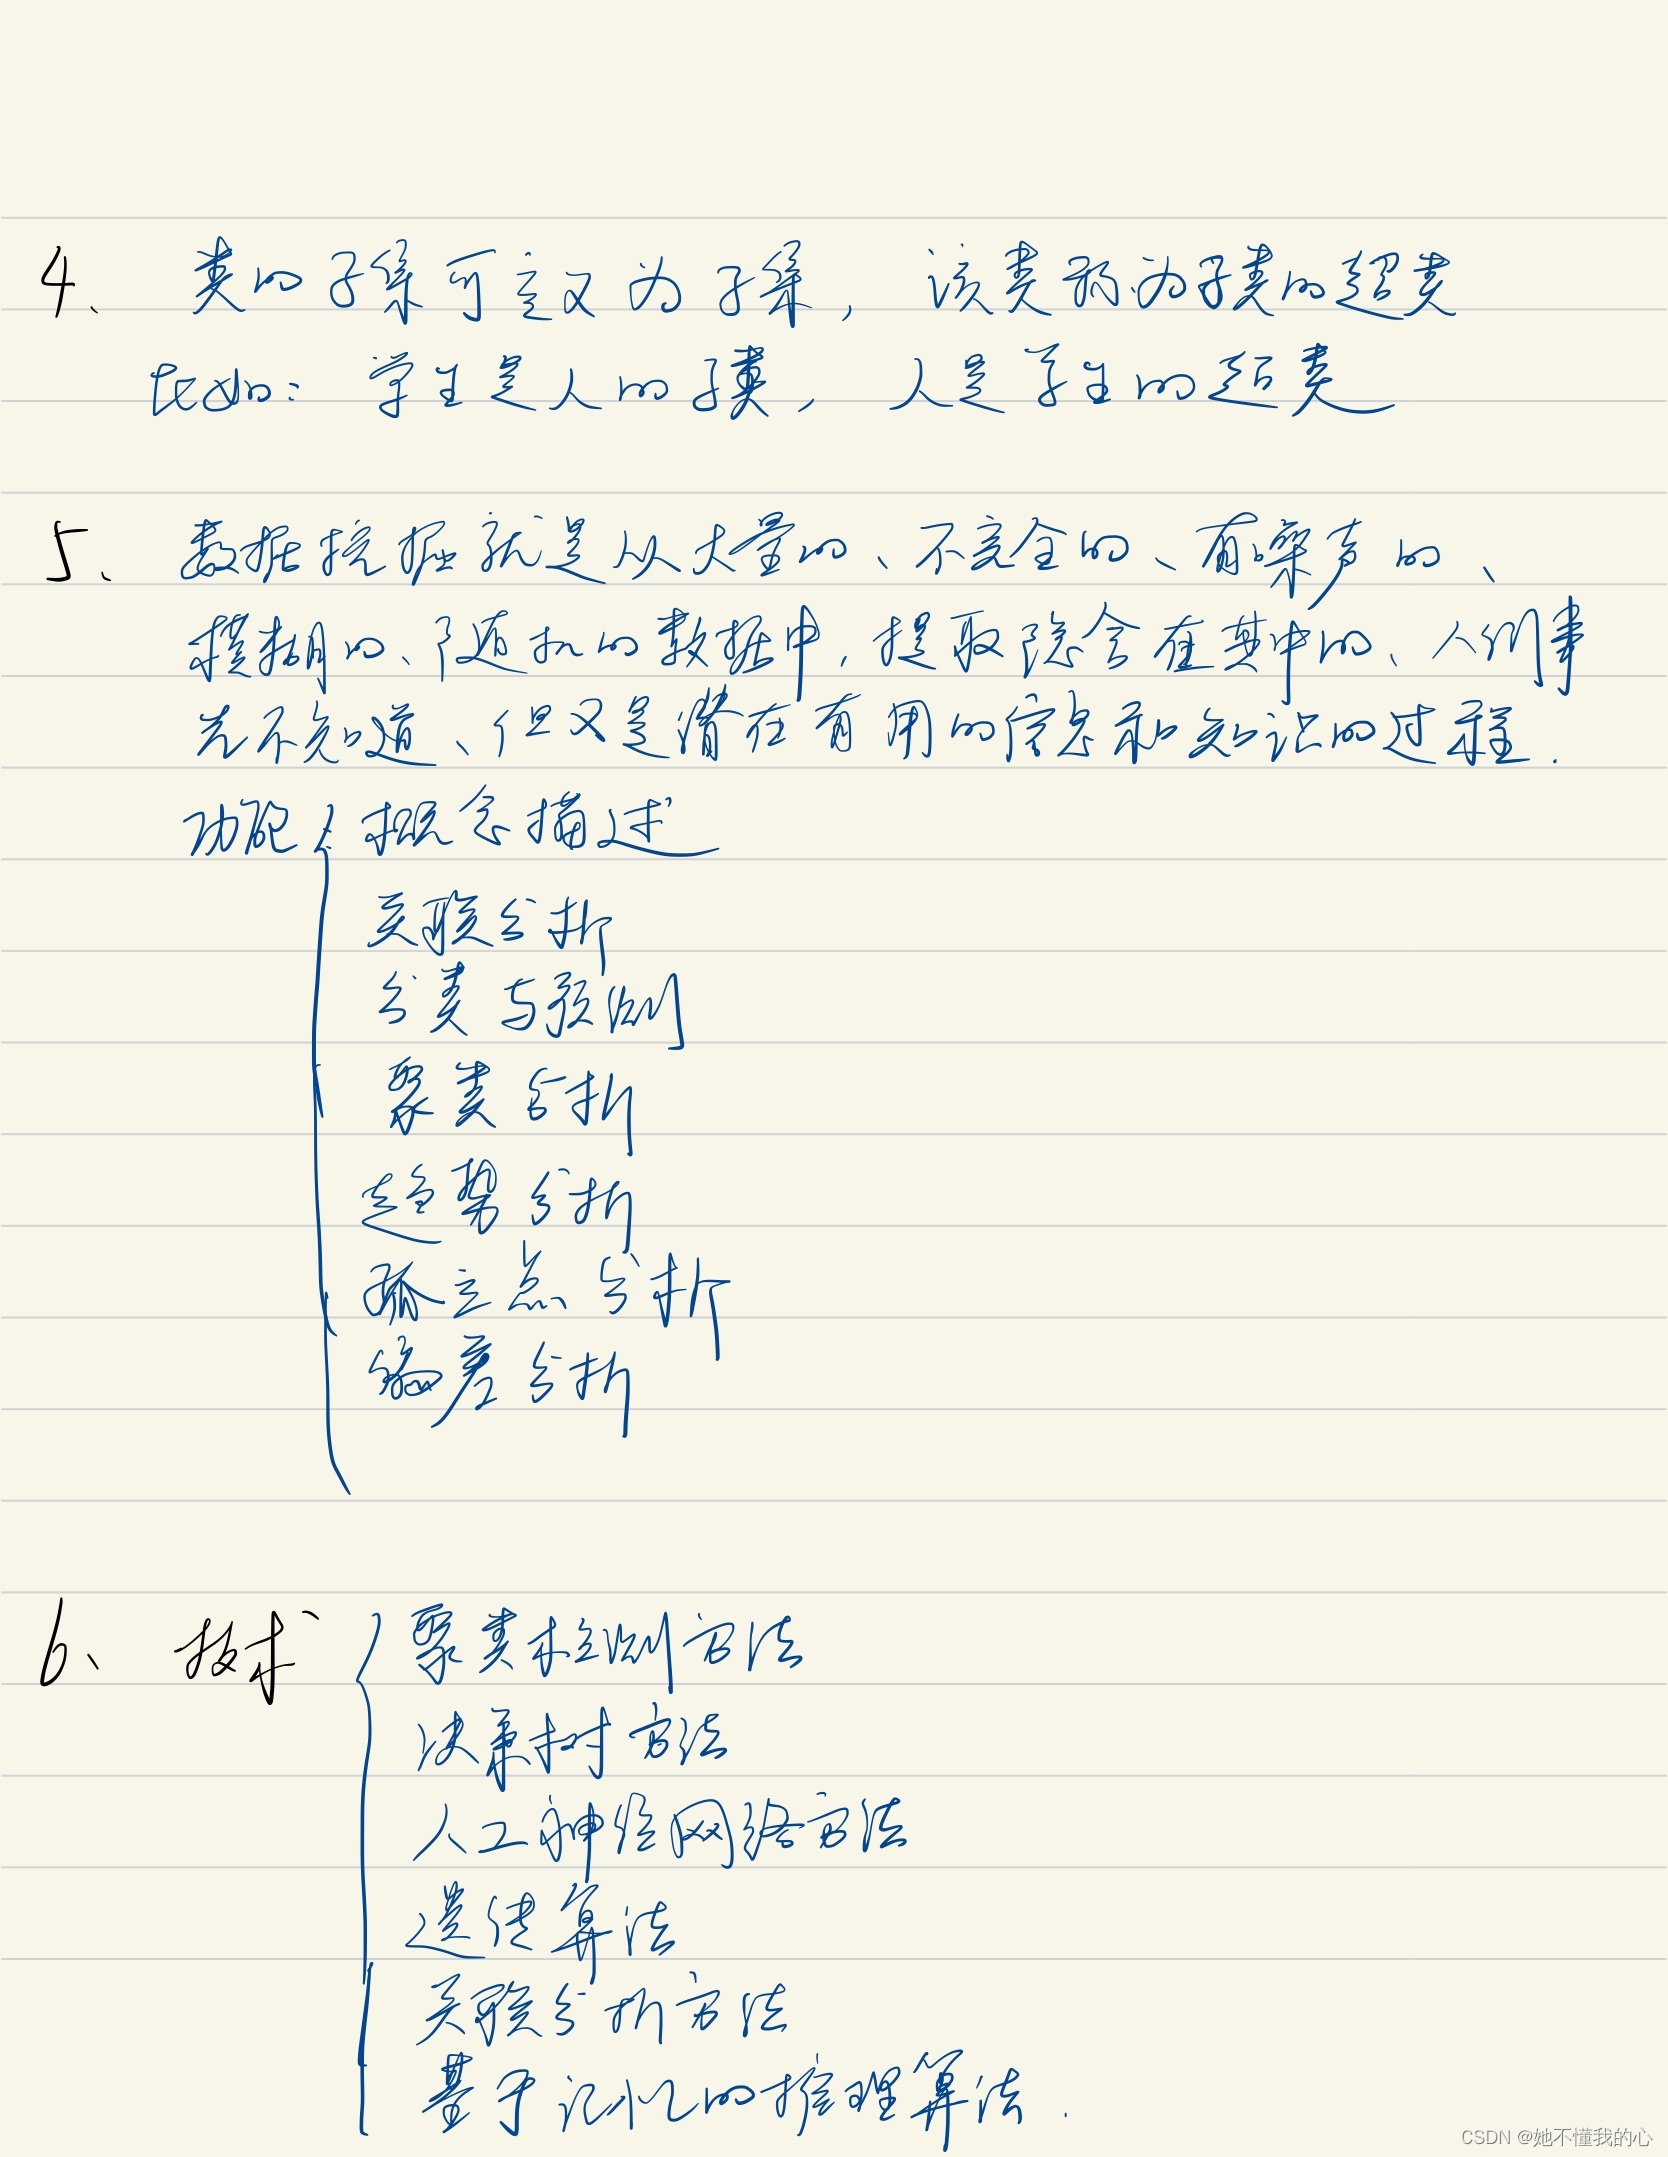 4、 类的子集可定义为子集，该类称为子类的超类
比如：学生是人的子类，人是学生的超类
5、 数据挖掘就是从大量的、不完全的、有噪声的、
模糊的、随机的数据中，提取隐含在其中的、人们事
先不知道、但又是潜在有用的信息和知识的过程.
功能{ 概念描述
关联分析
分类与预测
聚类分析
趋势分析
孤立点分析
偏差分析
6、 技术{ 聚类检测方法
决策树方法
人工神经网络方法
遗传算法
关联分析方法
基于记忆的推理算法.
CSDN @她不懂我的心